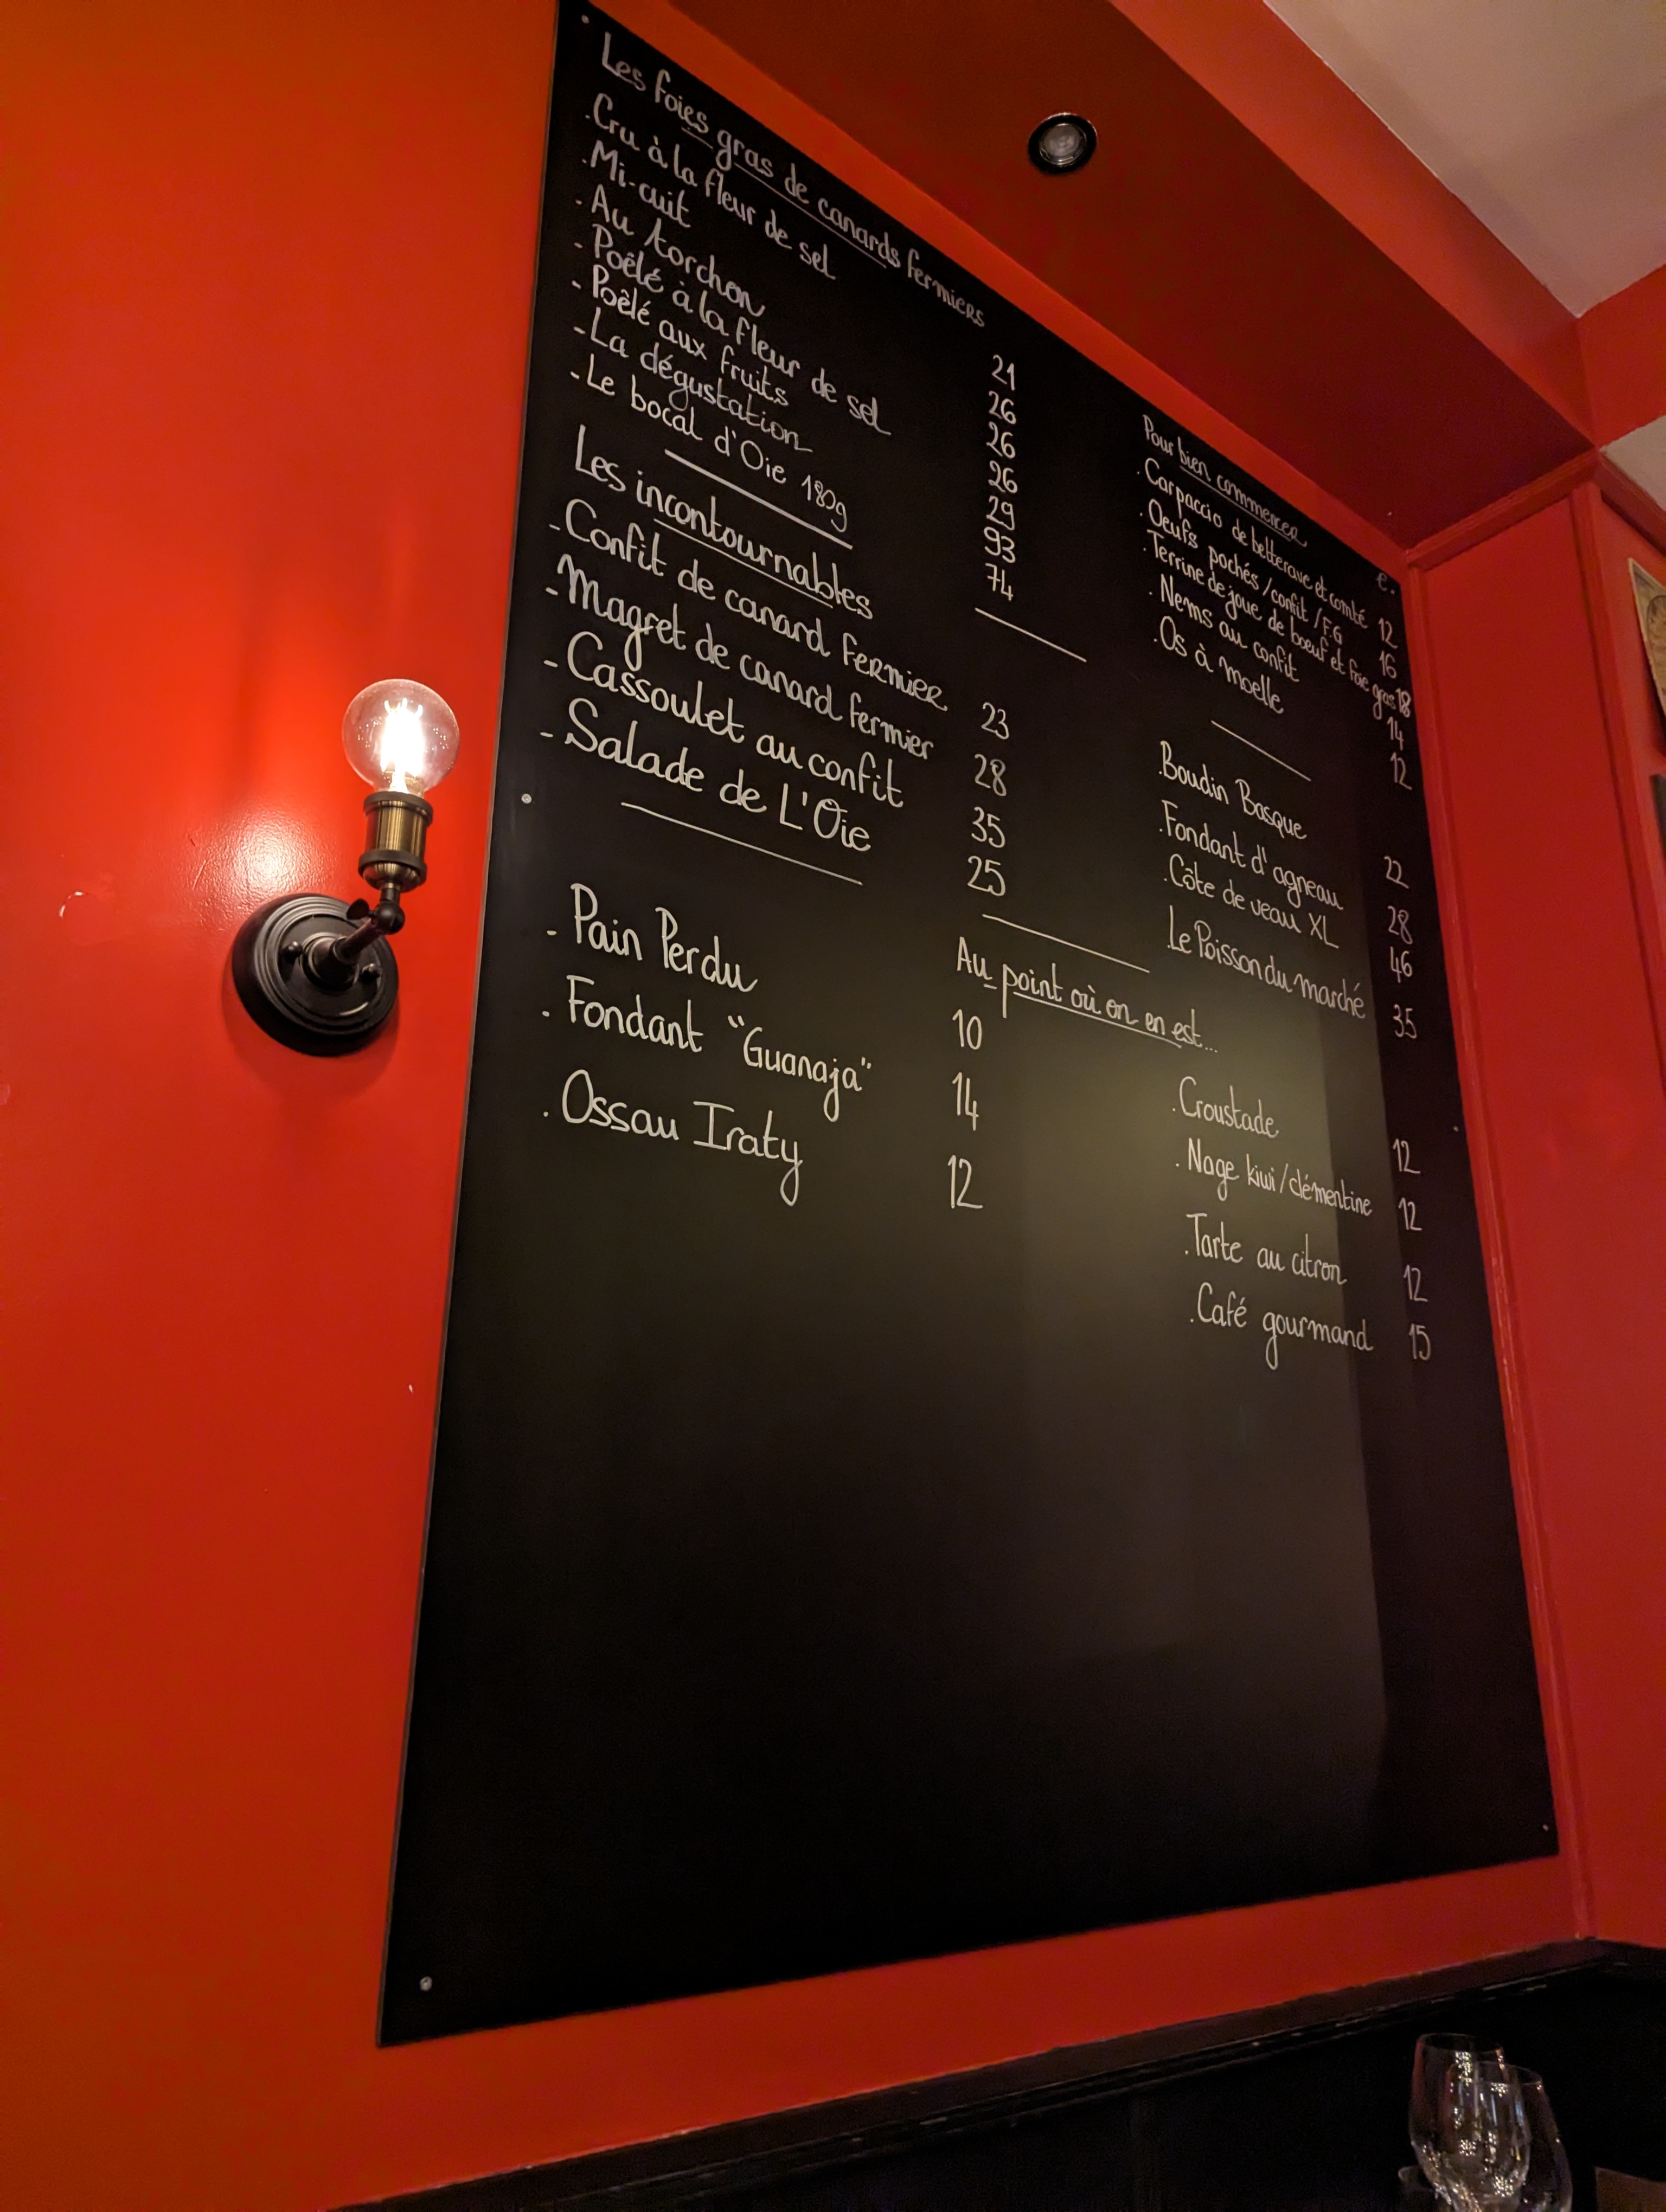 Les foies gras de canards fermiers
.Cru à la fleur de sel 21
.Mi-cuit 26
-Au torchon 26
-Poêlé à la fleur de sel 26
-Poêlé aux fruits 29
-La dégustation 93
-Le bocal d'Oie 180g 74
Les incontournables
-Confit de canard fermier 23
-Magret de canard fermier 28
-Cassoulet au confit 35
-Salade de L'Oie 25
Pour bien commencer €.
.Carpaccio de betterave et comté 12
.Oeufs pochés/confit/F.G 16
.Terrine de joue de boeuf et foie gras 18
.Nems au confit 14
.Os à moelle 12
.Boudin Basque 22
.Fondant d'agneau 28
.Côte de veau XL 46
Le Poisson du marché 35
Au point où on en est...
-Pain Perdu 10
.Fondant "Guanaja" 14
.Ossau Iraty 12
.Croustade 12
.Nage kiwi/clémentine 12
.Tarte au citron 12
.Café gourmand 15